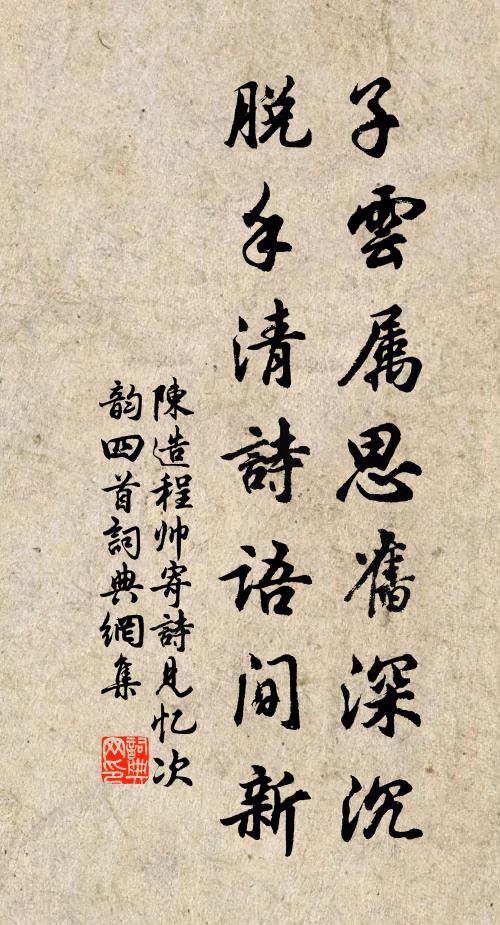 子雲属思舊深沉
脱手清詩語間新
陳造程帅寄詩見忆次
韵四首詞典網集
詞典
网印